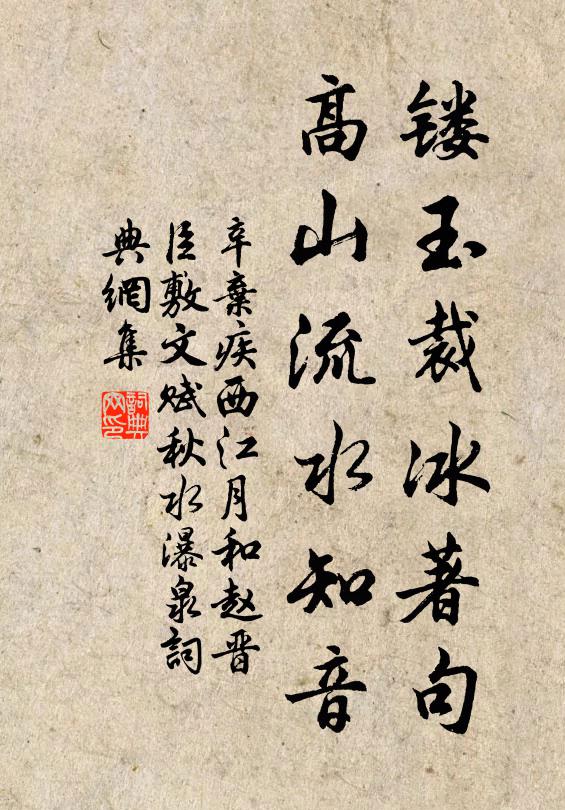 镂玉裁冰著句
高山流水知音
辛棄疾西江月和赵晋
臣敷文赋秋水瀑泉詞
典網集
詞典
网印